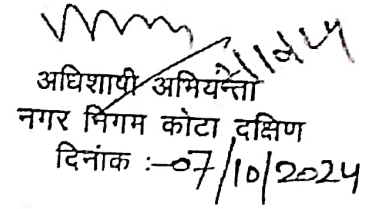 अधिशाषी अभियन्ता
नगर निगम कोटा दक्षिण
दिनांक :-07/10/2024